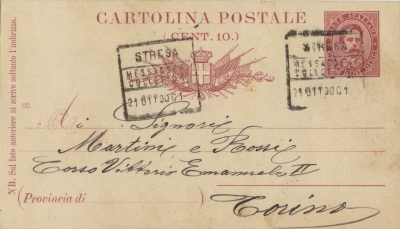 CARTOLINA POSTALE
(CENT. 10.)
STRESA
21 OTT 90
STRESA
21 OTT 90
NB. Sul lato anteriore si scrive soltanto l'indirizzo.
Ai Signori
Martini e Rossi
Corso Vittorio Emanuele II
(Provincia di
Torino